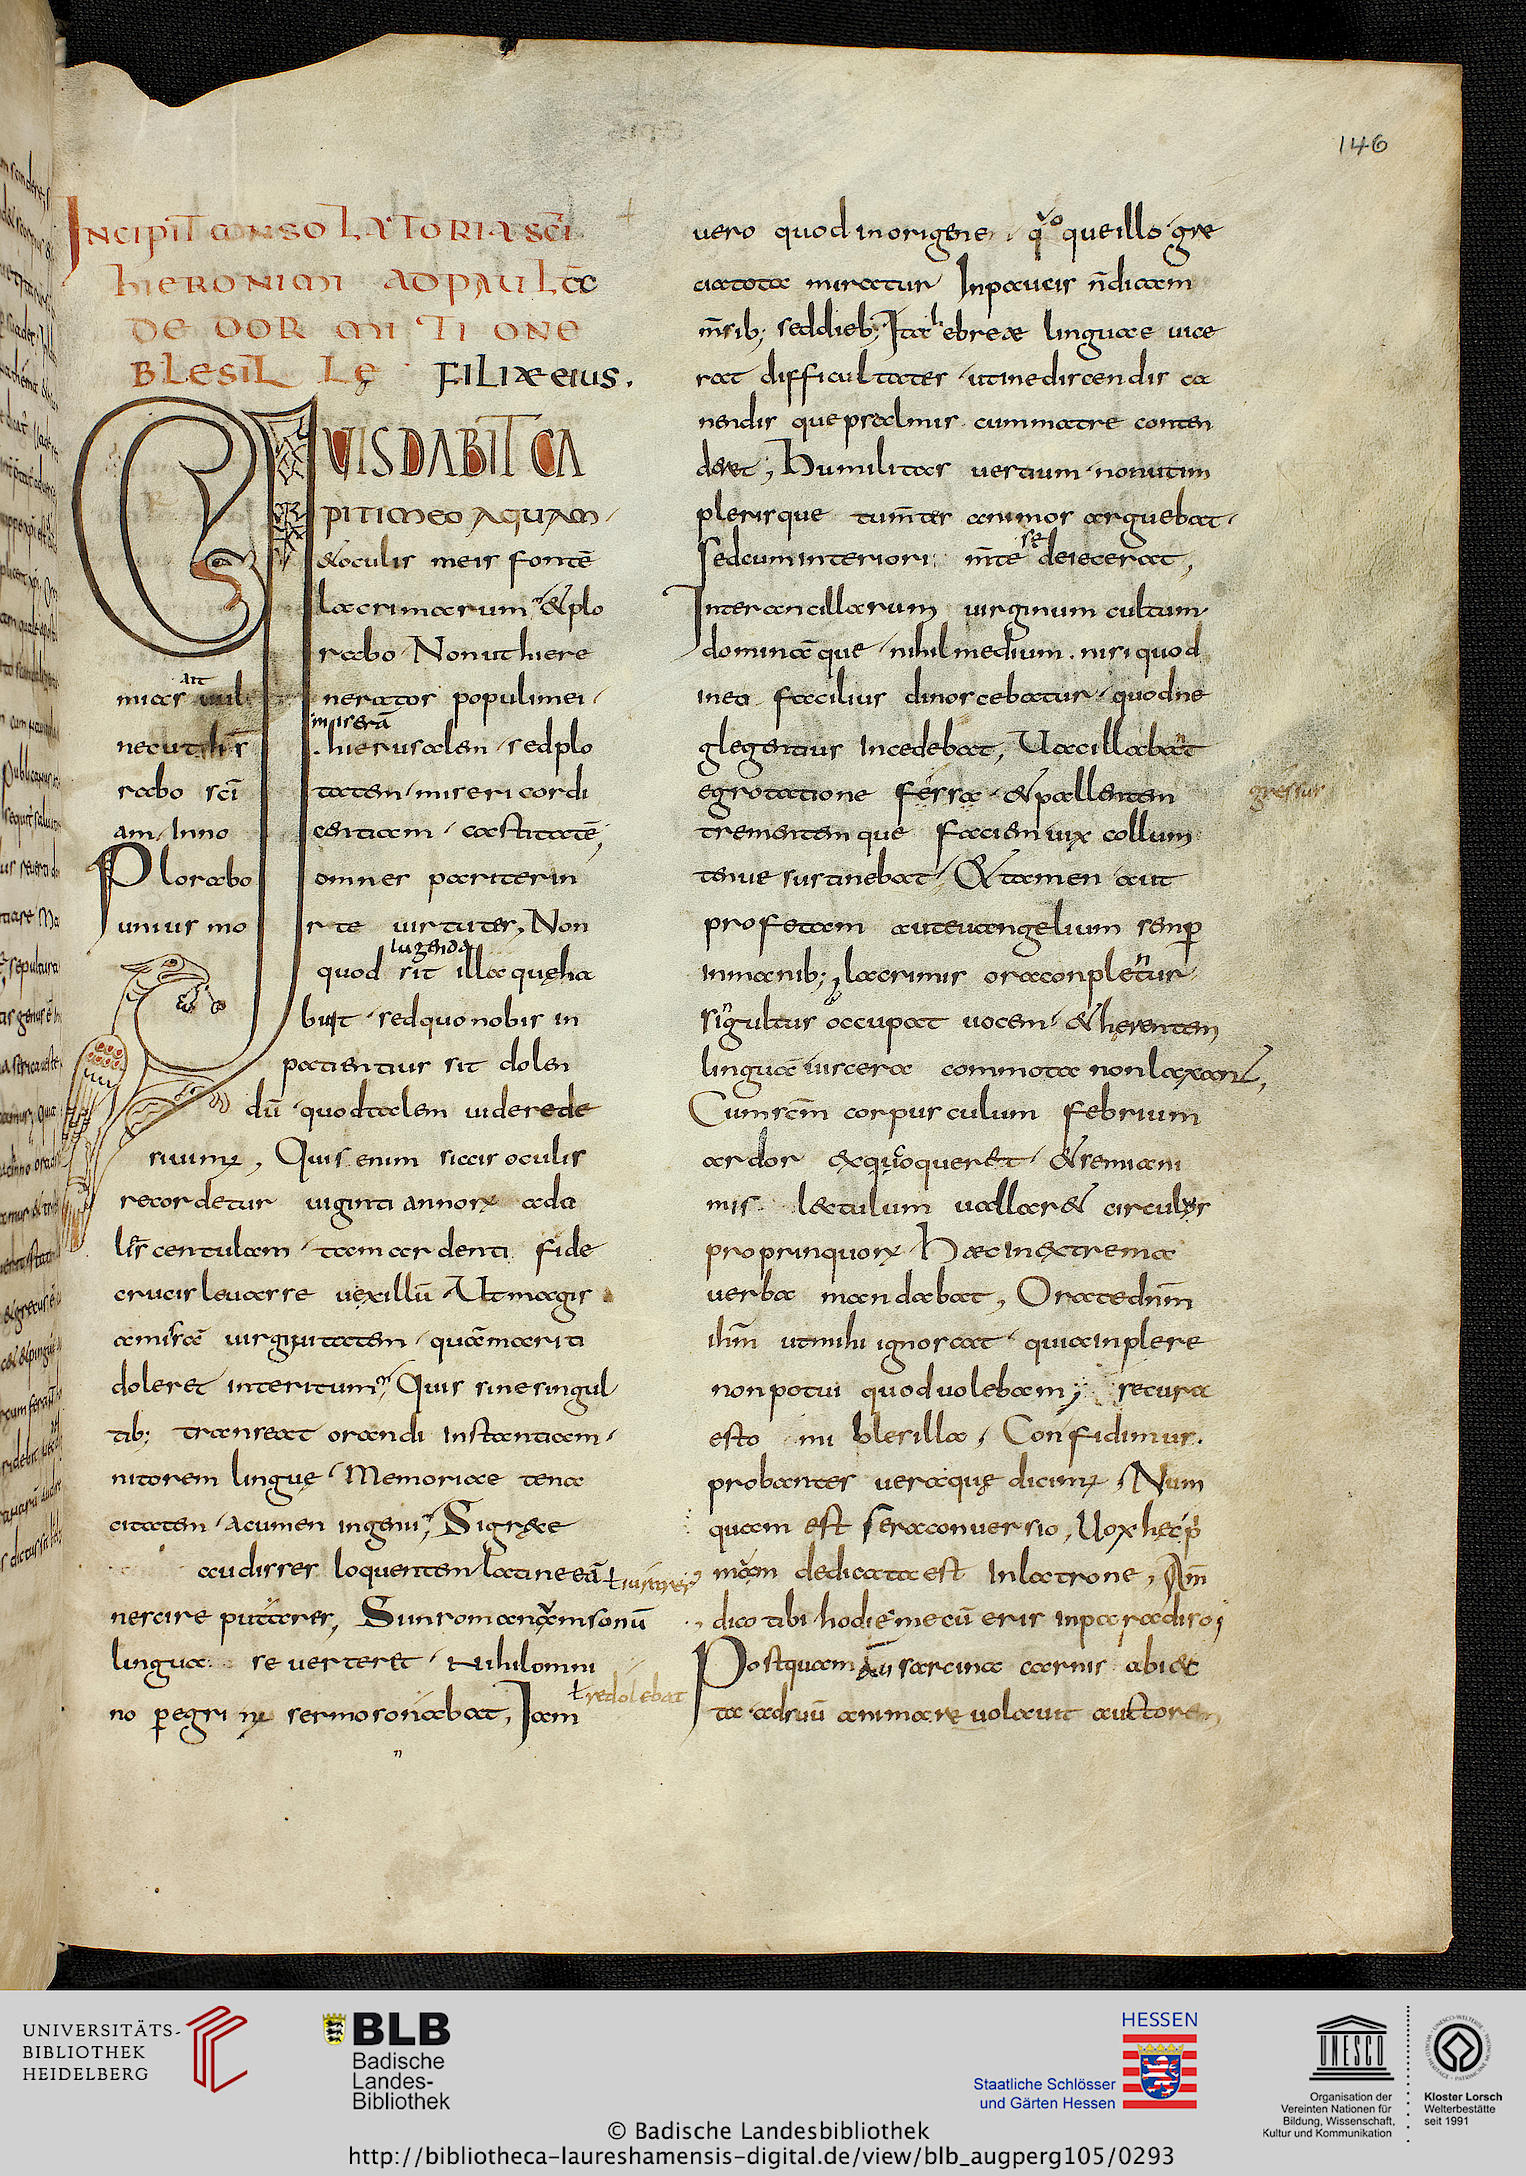 146
INCIPIT CONSOLATORIA SCĪ
HIERONIMI AD PAULĀ
DE DORMITIONE
BLESILLĘ FILIAE EIUS.
QUIS DABIT CA
PITI MEO AQUAM
& oculis meis fontē
lacrimarum & plo
rabo Non ut hiere
mias ait vulneratos populi mei
nec ut ihs miserā hierusalem sed plo
rabo scī tatem misericordi
am Inno centiam castitatē
Plorabo omnes pariter in
unius mo rte virtutes, Non
quod lugenda sit illa quęha
buit sed quo nobis in
patientius sit dolen
dū quod talem videre de
siuim', Quis enim siccis oculis
recordetur viginti annorū ada
liscentulam tam ardenti fide
crucis levasse vexillū Ut magis
amissā virginitatem quā mariti
doleret interitum, Quis sine singul
tib; transeat orandi Instantiam
nitorem linguę Memoriae tena
citatem Acumen ingenii, Si grece
audisses loquentem latine eā ł iurares
nescire putares, Sin romanam sonū
lingua se verteret Nihil omni
no peregrinū sermo sonabat, Iam ł redolebat
vero quod in origene quoque illo gre
cia tota miratur In paucis n̄ dicam
m̄sib; sed dieb; Ita hebreae linguae vice
rat difficultates ut in ediscendis ca
nendisque psalmis cum matre conten
deret; Humilitas vestium non ut in
plerisque tum̄tes animos arguebat
sed cum interiori m̄te se deiecerat,
Inter ancillarum virginum cultum
domināque nihil medium nisi quod
in eo facilius dinoscebatur quod ne
glegentius Incedebat, Vacillabant
egrotatione fessa & pallentem gressus
trementemque faciem vix collum
tenue sustinebat & tamen aut
profetam aut evangelium semp
in manib; lacrimis ora conplentur
singultus occupat vocem & herentem
linguā viscera commota non laxant,
Cum scm̄ corpusculum febrium
ardor exquoqueret & semiani
mis lectulum vallar& circulus
propinquorū Haec In extrema
verba mandabat, Orate dnm̄
ihm̄ ut mihi ignoscat quia inplere
non potui quod volebam; secura
esto mi blesilla, Confidimus
probantes veraquę dicim', Num
quam est sera conversio, Vox hęc p
mum dedicata est In latrone, Am̄
dico tibi hodie mecū eris in paradiso;
Postquam sarcina carnis abiec
ta ad suū anima revolavit auctorem
UNIVERSITÄTS-
BIBLIOTHEK
HEIDELBERG
BLB
Badische
Landes-
Bibliothek
HESSEN
Staatliche Schlösser
und Gärten Hessen
UNESCO
Organisation der
Vereinten Nationen für
Bildung, Wissenschaft,
Kultur und Kommunikation
Kloster Lorsch
Welterbestätte
seit 1991
© Badische Landesbibliothek
http://bibliotheca-laureshamensis-digital.de/view/blb_augperg105/0293